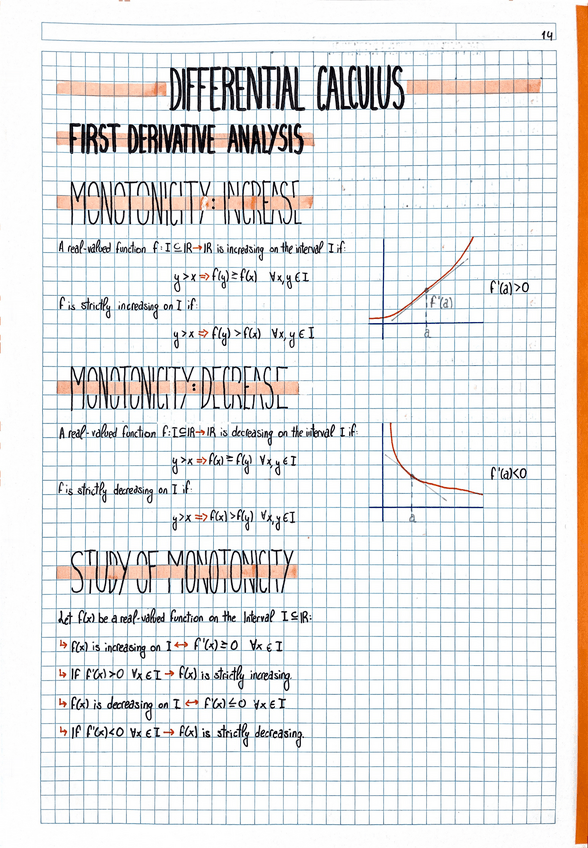 14
DIFFERENTIAL CALCULUS
FIRST DERIVATIVE ANALYSIS
MONOTONICITY: INCREASE
A real-valued function f: I ⊆ IR → IR is increasing on the interval I if:
y > x ⇒ f(y) ≥ f(x) ∀x, y ∈ I
f is strictly increasing on I if:
y > x ⇒ f(y) > f(x) ∀x, y ∈ I
f'(a)
a
f'(a) > 0
MONOTONICITY: DECREASE
A real-valued function f: I ⊆ IR → IR is decreasing on the interval I if:
y > x ⇒ f(x) ≥ f(y) ∀x, y ∈ I
f is strictly decreasing on I if:
y > x ⇒ f(x) > f(y) ∀x, y ∈ I
a
f'(a) < 0
STUDY OF MONOTONICITY
Let f(x) be a real-valued function on the Interval I ⊆ IR:
↳ f(x) is increasing on I ↔ f'(x) ≥ 0 ∀x ∈ I
↳ If f'(x) > 0 ∀x ∈ I → f(x) is strictly increasing.
↳ f(x) is decreasing on I ↔ f'(x) ≤ 0 ∀x ∈ I
↳ If f'(x) < 0 ∀x ∈ I → f(x) is strictly decreasing.